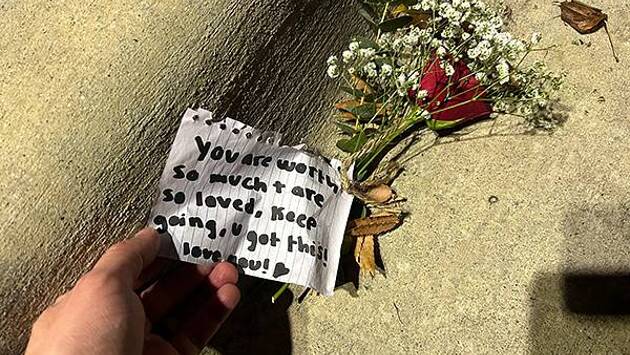 You are worth
so much + are
so loved, Keep
going, u got this!
love you! ♥